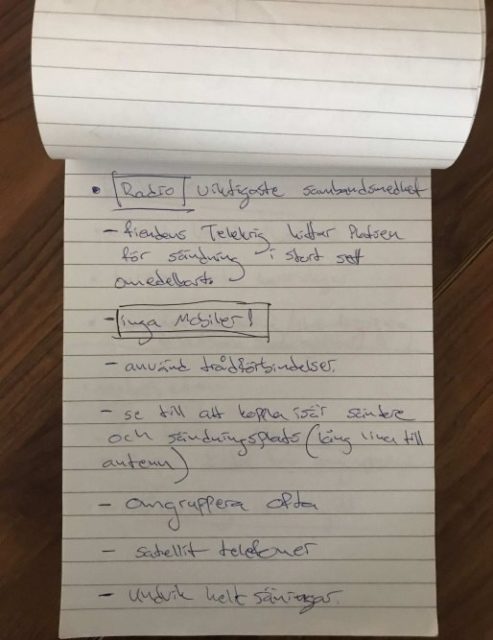 • Radio viktigaste sambandsmedlet
- fiendens Telekrig hittar Platsen
för sändning i stort sett
omedelbart.
- inga Mobiler!
- använd trådförbindelser.
- se till att koppla isär sändare
och sändningsplats (lång lina till
antenn)
- omgruppera ofta
- satellit telefoner
- undvik helt sändningar.